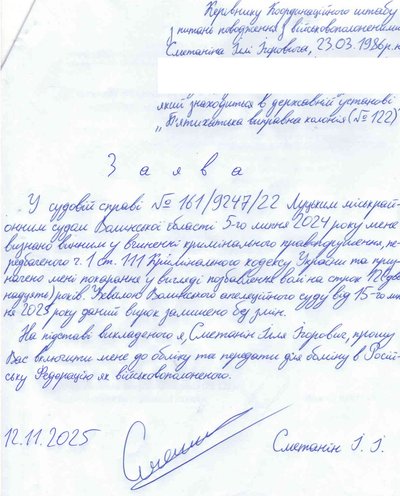 Керівнику Координаційного штабу
з питань поводження з військовополоненими
Сметаніна Іллі Ігоровича, 23.03.1986р.н
який знаходиться в державній установі
„Пʼятихатська виправна колонія (№122)"
Заява
У судовій справі №161/9247/22 Луцьким міськрай-
онним судом Волинської області 5-го липня 2024 року мене
визнано винним у вчиненні кримінального правопорушення, пе-
редбаченого ч.1 ст.111 Кримінального кодексу України та приз-
начено мені покарання у вигляді позбавлення волі на строк 12(два
надцять) років. Ухвалою Волинського апеляційного суду від 15-го
2025 року даний вирок залишено без змін.
На підставі викладеного я, Сметанін Ілля Ігорович, прошу
Вас включити мене до обміну та передати для обміну в Росій-
ську Федерацію як військовополоненого.
12.11.2025
Сметанін І. І.